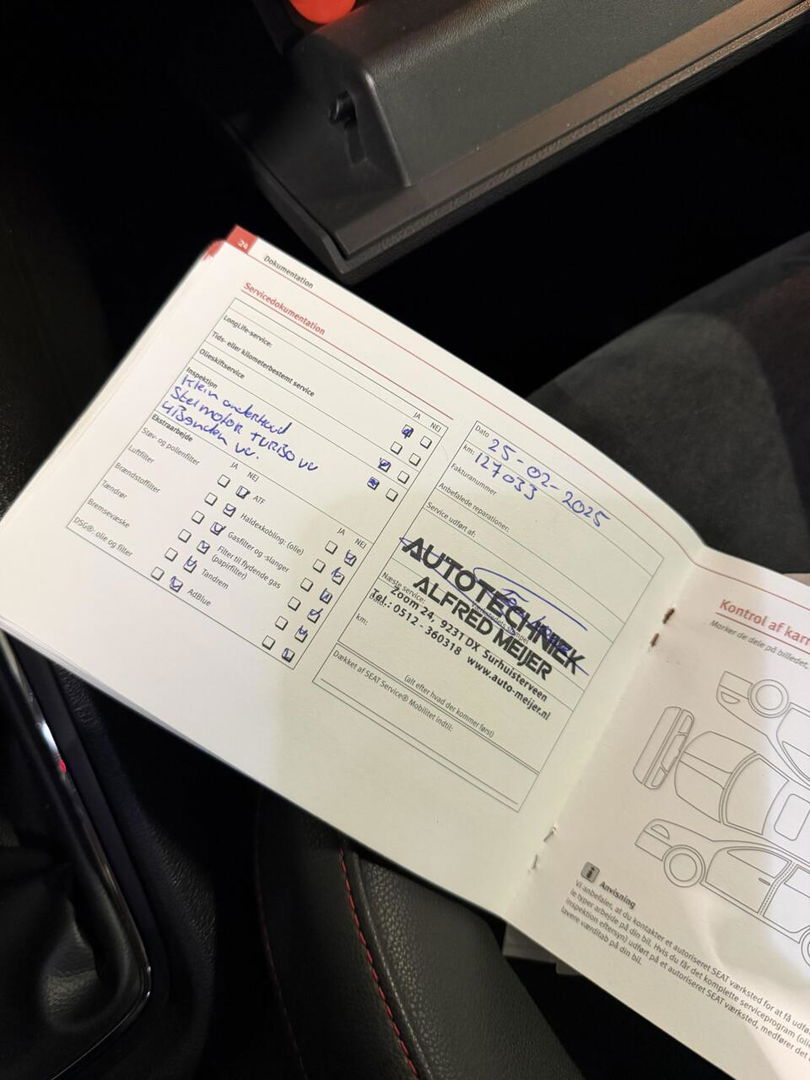 24
Dokumentation
Servicedokumentation
JA NEJ
LongLife-service:
Tids- eller kilometerbestemt service
Olieskiftservice
Inspektion
Klein onderhoud
Stelmotor TURBO vv
4 Banden vv.
Ekstraarbejde
JA NEJ
Støv- og pollenfilter
Luftfilter
Brændstoffilter
Tændrør
Bremsevæske
DSG®-olie og filter
JA NEJ
ATF
Haldexkobling: (olie)
Gasfilter og -slanger
Filter til flydende gas
(papirfilter)
Tandrem
AdBlue
Dato 25-02-2025
km: 127033
Fakturanummer:
Anbefalede reparationer:
Service udført af:
AUTOTECHNIEK
ALFRED MEIJER
Zoom 24, 9231 DX Surhuisterveen
Tel.: 0512 - 360318 www.auto-meijer.nl
Næste service:
km:
(alt efter hvad der kommer først)
Dækket af SEAT Service® Mobilitet indtil:
Kontrol af karr
Marker de dele på billedet,
i Anvisning
Vi anbefaler, at du kontakter et autoriseret SEAT værksted for at få udfør
le typer arbejde på din bil. Hvis du får det komplette serviceprogram (olie
inspektion eftersyn) udført på et autoriseret SEAT værksted, medfører det
lavere værditab på din bil.